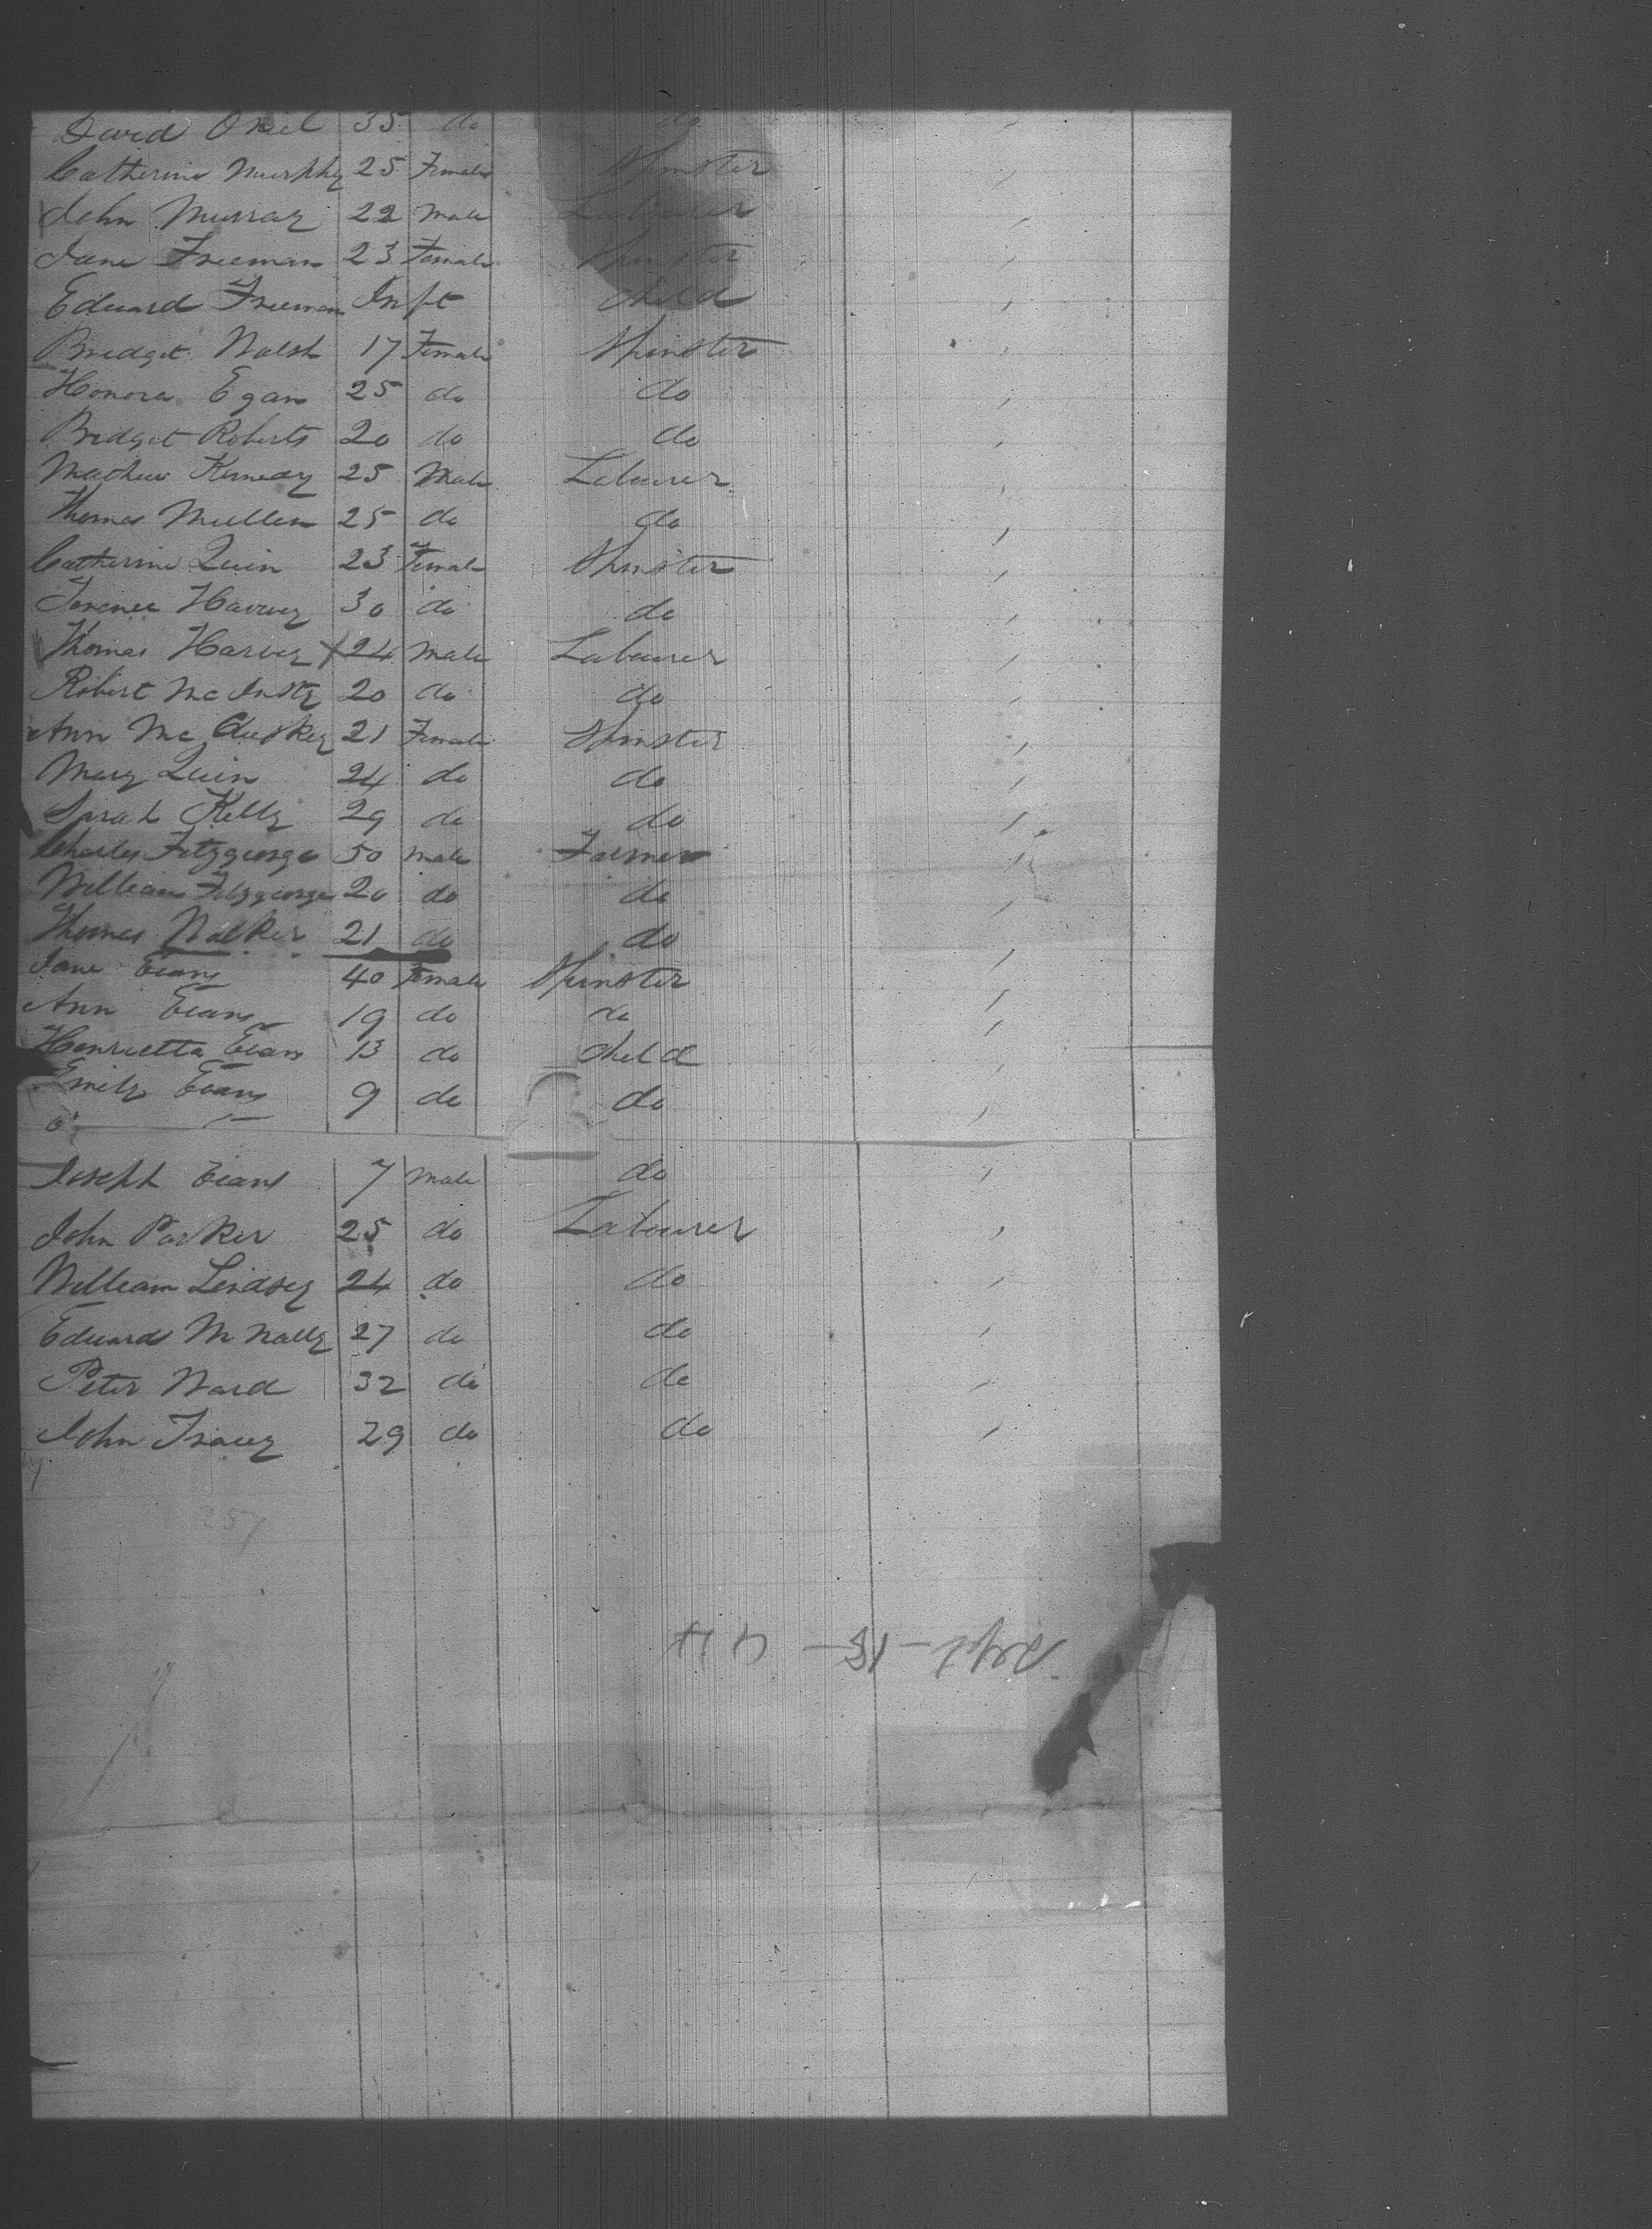 David Oniel 35 do do
Catherine Murphy 25 Female Spinster
John Murray 22 Male Labourer
Jane Freeman 23 Female Spinster
Edward Freeman Inft Child
Bridget Walsh 17 Female Spinster
Honora Egan 25 do do
Bridget Roberts 20 do do
Mathew Kennedy 25 Male Labourer
Thomas Mullen 25 do do
Catherine Quin 23 Female Spinster
Harvey 30 do do
Thomas Harvey X 24 Male Labourer
Robert 20 do do
Ann Mc Cluskey 21 Female Spinster
Mary Quin 24 do do
Sarah Kelly 29 do do
Charles Fitzgeorge 50 Male Farmer
William Fitzgeorge 20 do do
Thomas Walker 21 do do
Jane Evans 40 Female Spinster
Ann Evans 19 do do
Henrietta Evans 13 do Child
Emily Evans 9 do do
Joseph Evans 7 Male do
John Parker 25 do Labourer
William Lindsey 24 do do
Edward M Nally 27 do do
Peter Ward 32 do do
John Tracey 29 do do
257
Sept - 15 -